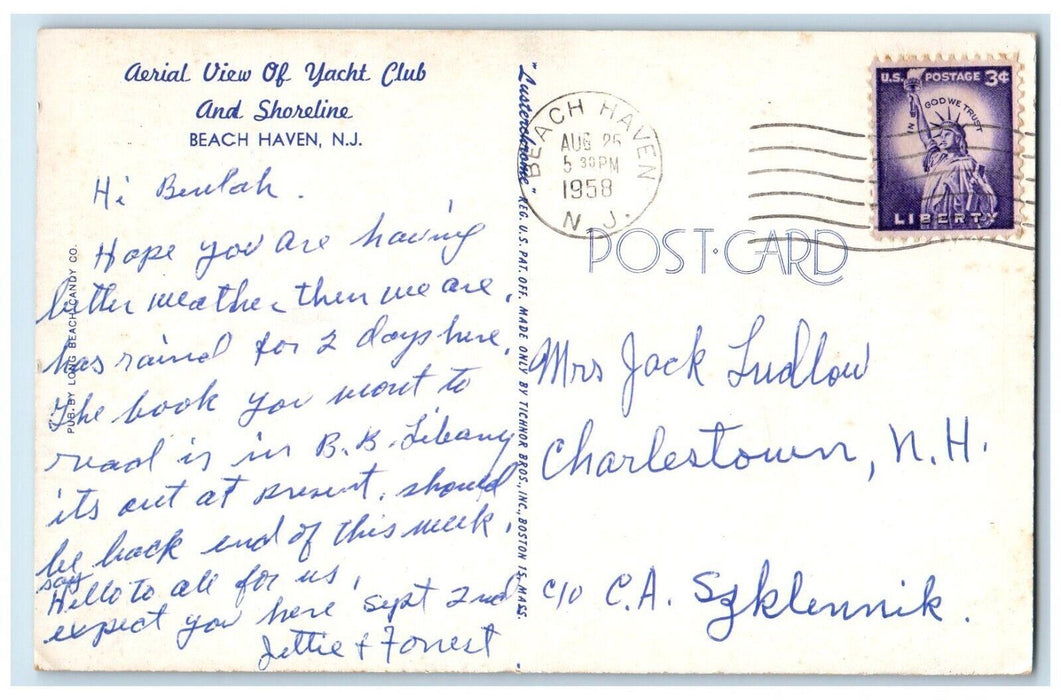 Aerial View Of Yacht Club
And Shoreline
BEACH HAVEN, N.J.
Hi Beulah.
Hope you are having
better weather then we are,
has rained for 2 days here.
The book you want to
read is in B.B. Libary
its out at present. should
be back end of this week.
say
Hello to all for us,
expect you here Sept 2nd
Jettie & Forrest
PUB. BY LONG BEACH CANDY CO.
"Lusterchrome" REG. U.S. PAT. OFF. MADE ONLY BY TICHNOR BROS., INC., BOSTON 15, MASS.
BEACH HAVEN
AUG 25
5 30 PM
1958
N. J.
U.S. POSTAGE 3¢
IN GOD WE TRUST
LIBERTY
POST·CARD
Mrs Jack Ludlow
Charlestown, N.H.
c/o C.A. Szklennik.